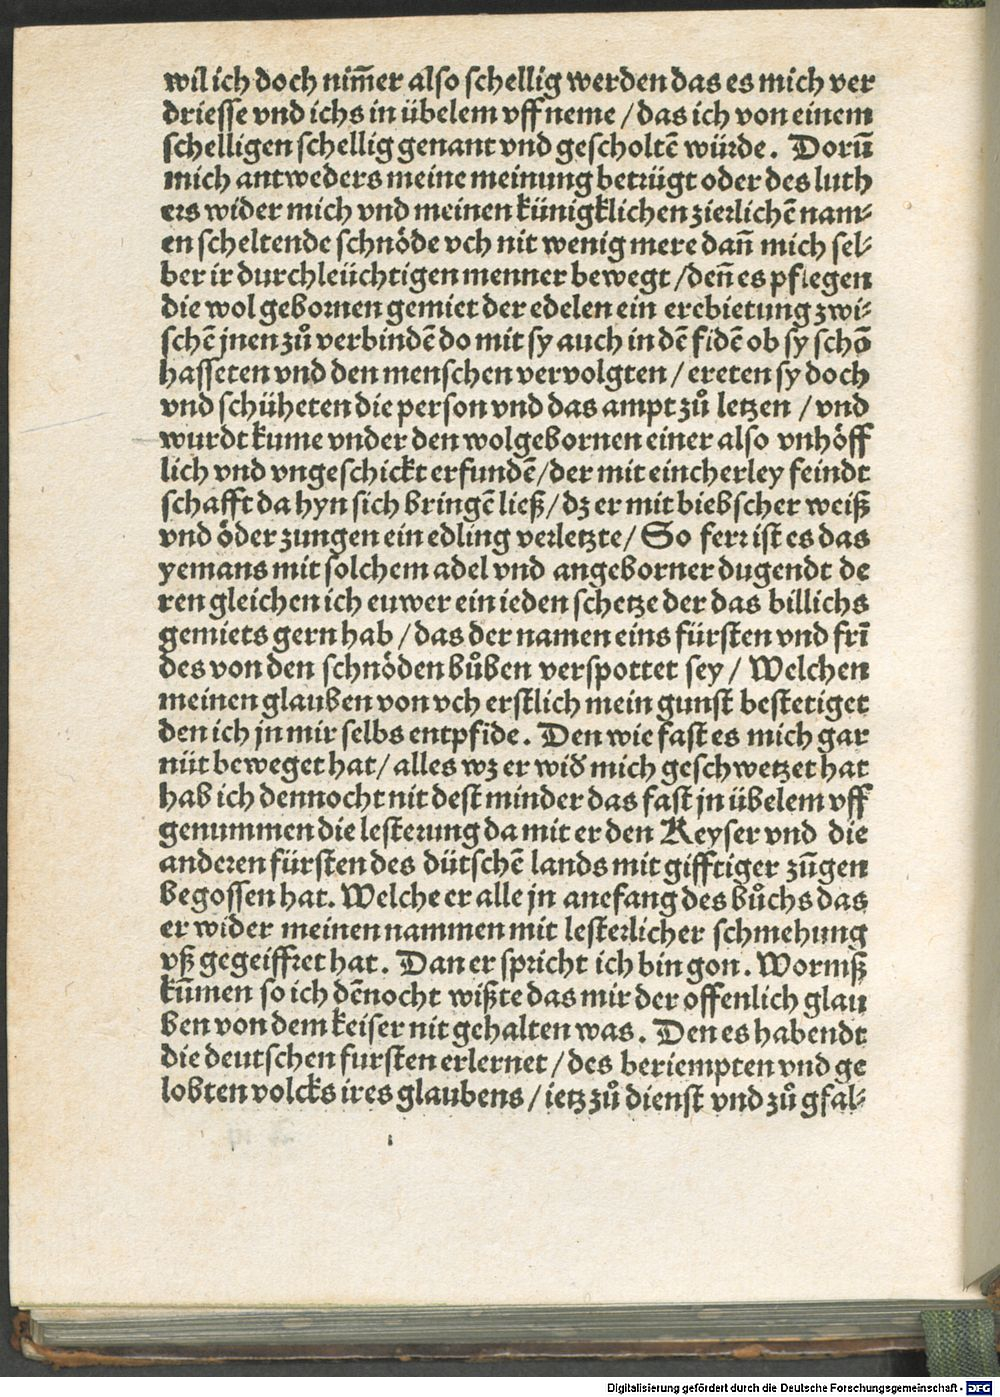 wil ich doch nim̄er also schellig werden das es mich ver
driesse vnd ichs in übelem vff neme / das ich von einem
schelligen schellig genant vnd gescholtē würde. Dorūm
mich antweders meine meinung betrügt oder des luth
ers wider mich vnd meinen künigklichen zierlichē nam⸗
en scheltende schnöde vch nit wenig mere dan̄ mich sel⸗
ber ir durchleüchtigen menner bewegt / den̄ es pflegen
die wol gebornen gemiet der edelen ein erebietung zwi⸗
schē jnen zuͦ verbindē do mit sy auch in dē fidē ob sy schō
hasseten vnd den menschen vervolgten / ereten sy doch
vnd schüheten die person vnd das ampt zuͦ letzen / vnd
wurdt kume vnder den wolgebornen einer also vnhöff
lich vnd vngeschickt erfundē / der mit eincherley feindt
schafft da hyn sich bringē ließ / dz er mit biebscher weiß
vnd öder zungen ein edling verletzte / So ferr ist es das
yemans mit solchem adel vnd angeborner dugendt de
ren gleichen ich euwer ein ieden schetze der das billichs
gemiets gern hab / das der namen eins fürsten vnd frī
des von den schnöden buͦben verspottet sey / Welchen
meinen glauben von vch erstlich mein gunst bestetiget
den ich jn mir selbs entpfide. Den wie fast es mich gar
nüt beweget hat / alles wz er wid̄ mich geschwetzet hat
hab ich dennocht nit dest minder das fast jn übelem vff
genummen die lesterung da mit er den Keyser vnd die
anderen fürsten des dütschē lands mit gifftiger zūgen
begossen hat. Welche er alle jn anefang des buͦchs das
er wider meinen nammen mit lesterlicher schmehung
vß gegeiffret hat. Dan er spricht ich bin gon. Wormß
kūmen so ich dēnocht wißte das mir der offenlich glau
ben von dem keiser nit gehalten was. Den es habendt
die deutschen fursten erlernet / des beriempten vnd ge
lobten volcks ires glaubens / ietz zuͦ dienst vnd zuͦ gfal⸗
Digitalisierung gefördert durch die Deutsche Forschungsgemeinschaft - DFG